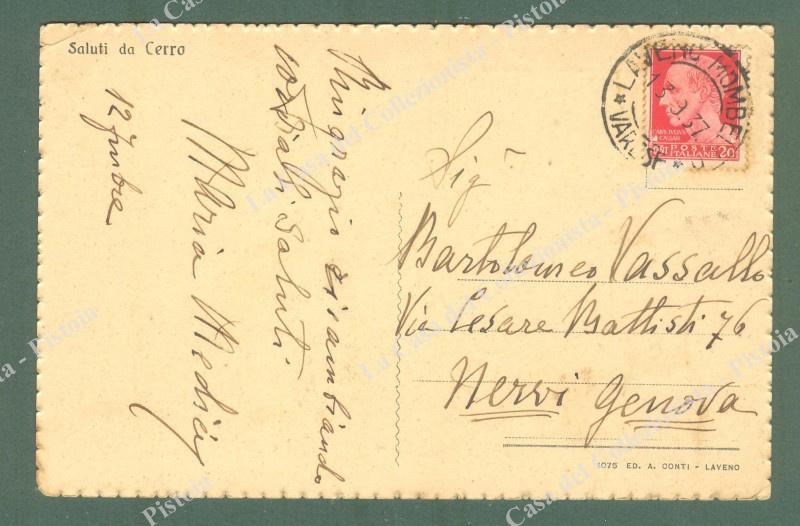 Saluti da Cerro
Ringrazio ricambiando
cordiali saluti
Maria
12
LAVENO MOMBELLO
13.9.37
* VARESE *
CAIVS IVLIVS
CAESAR
POSTE
ITALIANE 20
Sig.
Bartolomeo Vassallo
Via Cesare Battisti 76
Nervi Genova
1075 ED. A. CONTI - LAVENO
La Casa del Collezionista - Pistoia